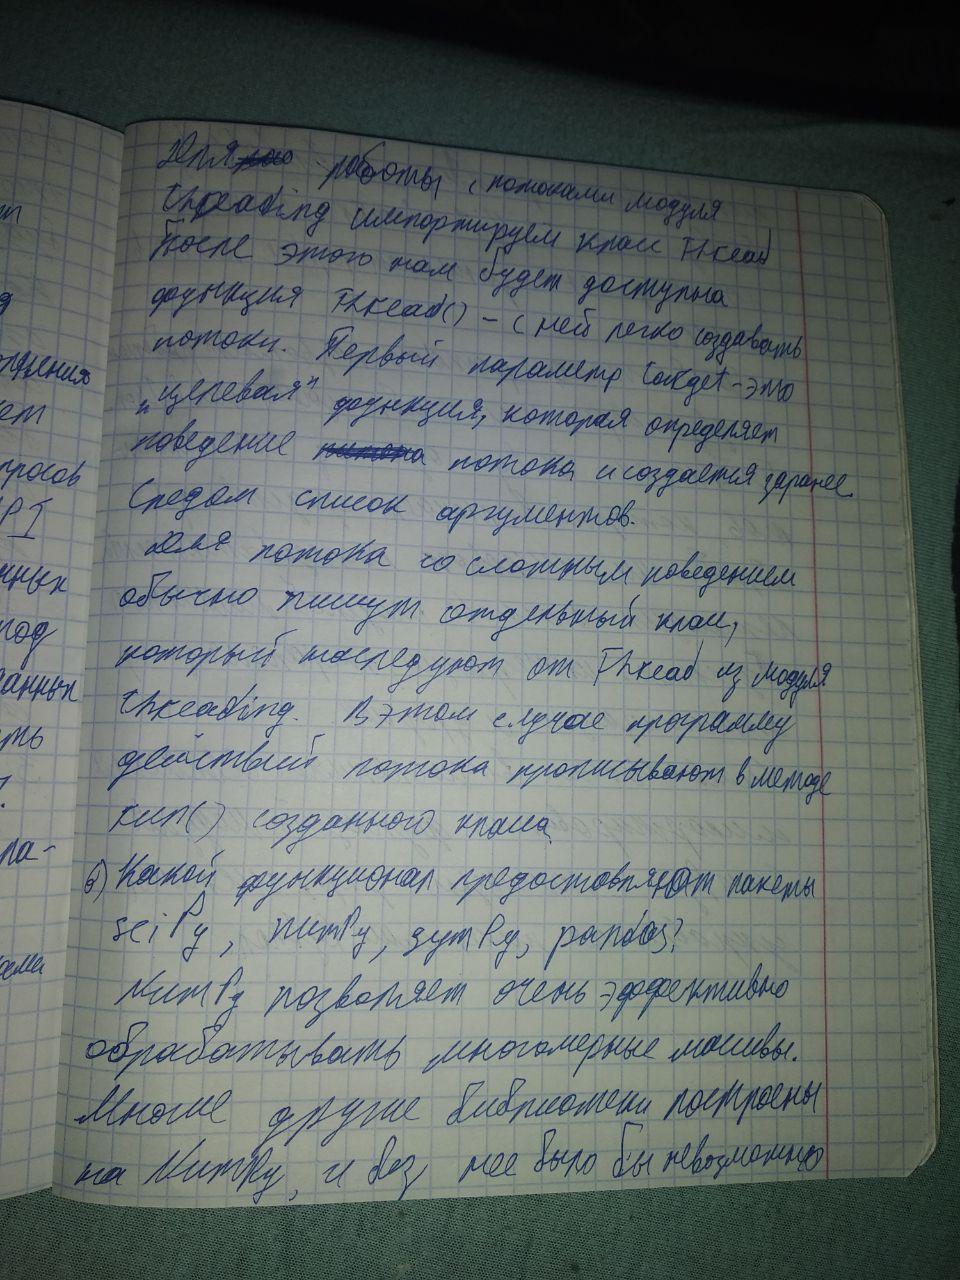 Для работы с потоками модуля
threading импортируем класс Thread
После этого нам будет доступна
функция Thread() – с ней легко создавать
потоки. Первый параметр target – это
„целевая" функция, которая определяет
поведение потока и создается заранее.
Следом список аргументов.
Для потока со сложным поведением
обычно пишут отдельный класс,
который наследуют от Thread из модуля
threading. В этом случае программу
действий потока прописывают в методе
run() созданного класса
6) Какой функционал предоставляют пакеты
sciPy, numPy, symPy, pandas?
NumPy позволяет очень эффективно
обрабатывать многомерные массивы.
Многие другие библиотеки построены
на NumPy, и без нее было бы невозможно
просов
PI
нных
под
данных
ть
ра-